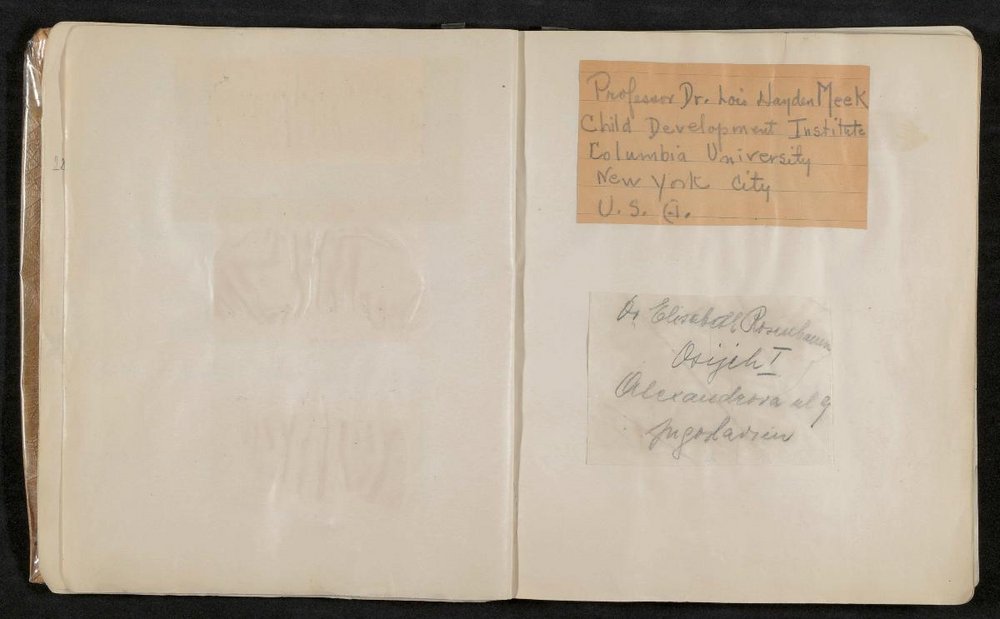 Professor Dr. Lois Hayden Meek
Child Development Institute
Columbia University
New York City
U. S. A.
Dr Elisabeth Rosenbaum
Osijek I
Alexandrova ul 9
Jugoslavien